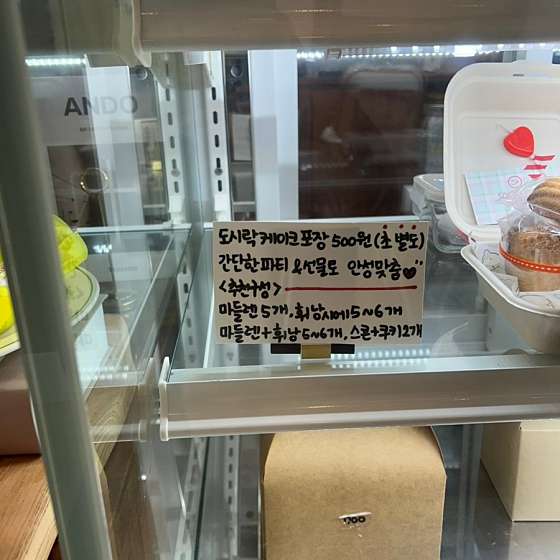 도시락케이크 포장 500원 (초 별도)
간단한파티 &선물도 안성맞춤
<추천구성>
마들렌 5개, 휘낭시에 5~6개
마들렌+휘낭 5~6개, 스콘+쿠키2개